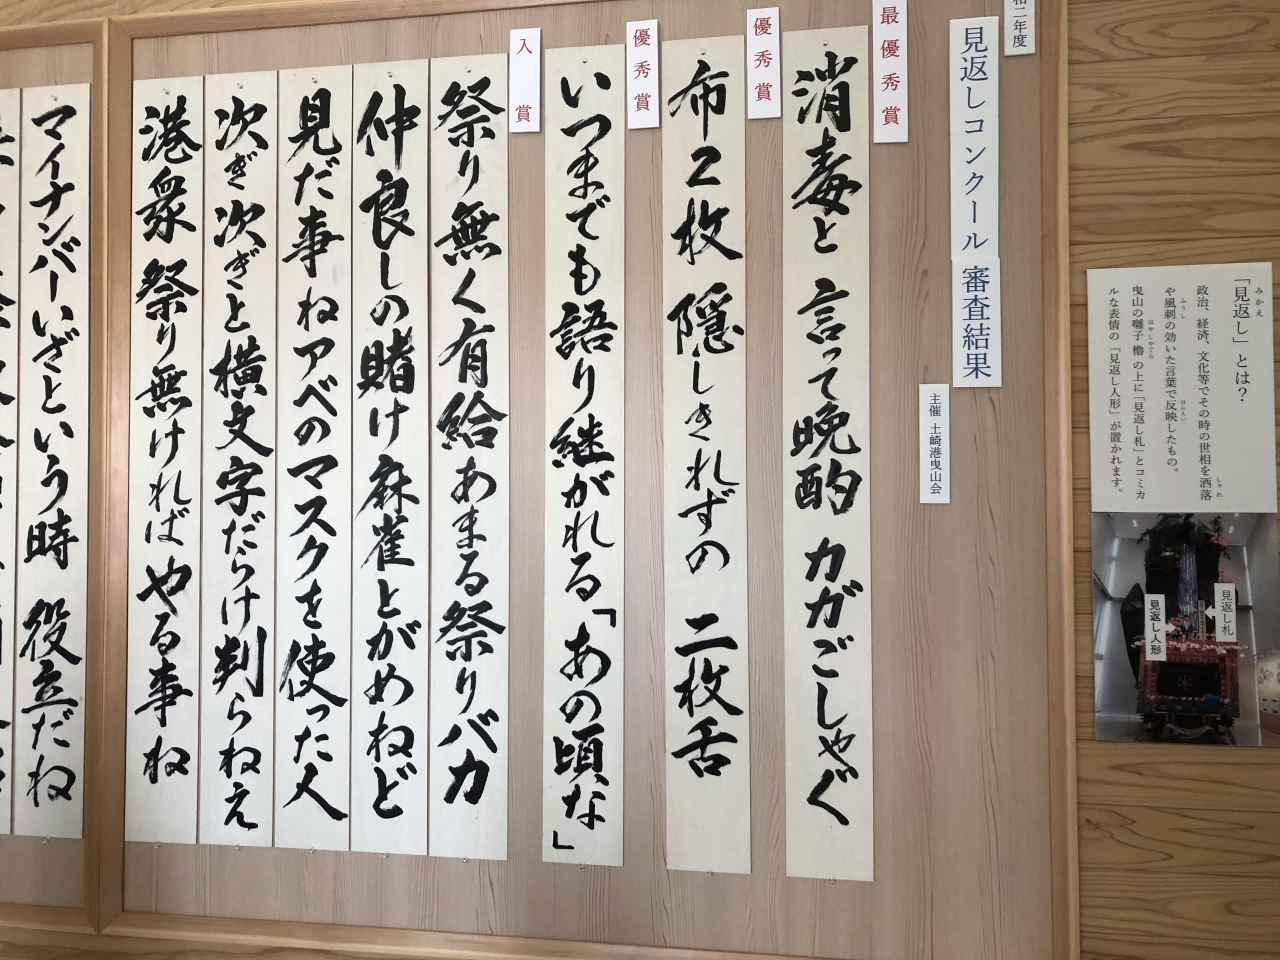 和二年度
見返しコンクール 審査結果
主催 土崎港曳山会
最優秀賞
消毒と 言って晩酌 カガごしゃぐ
優秀賞
布2枚 隠しきれずの 二枚舌
優秀賞
いつまでも語り継がれる「あの頃な」
入賞
祭り無く有給あまる祭りバカ
仲良しの賭け麻雀とがめねど
見だ事ねアベのマスクを使った人
次ぎ次ぎと横文字だらけ判らねえ
港衆 祭り無ければ やる事ね
マイナンバーいざという時 役立だね
「見返し」とは?
みかえ
政治、経済、文化等でその時の世相を洒落
しゃれ
や風刺の効いた言葉で反映したもの。
ふうし
はんえい
曳山の囃子櫓の上に「見返し札」とコミカ
はやしやぐら
ルな表情の「見返し人形」が置かれます。
見返し札
見返し人形